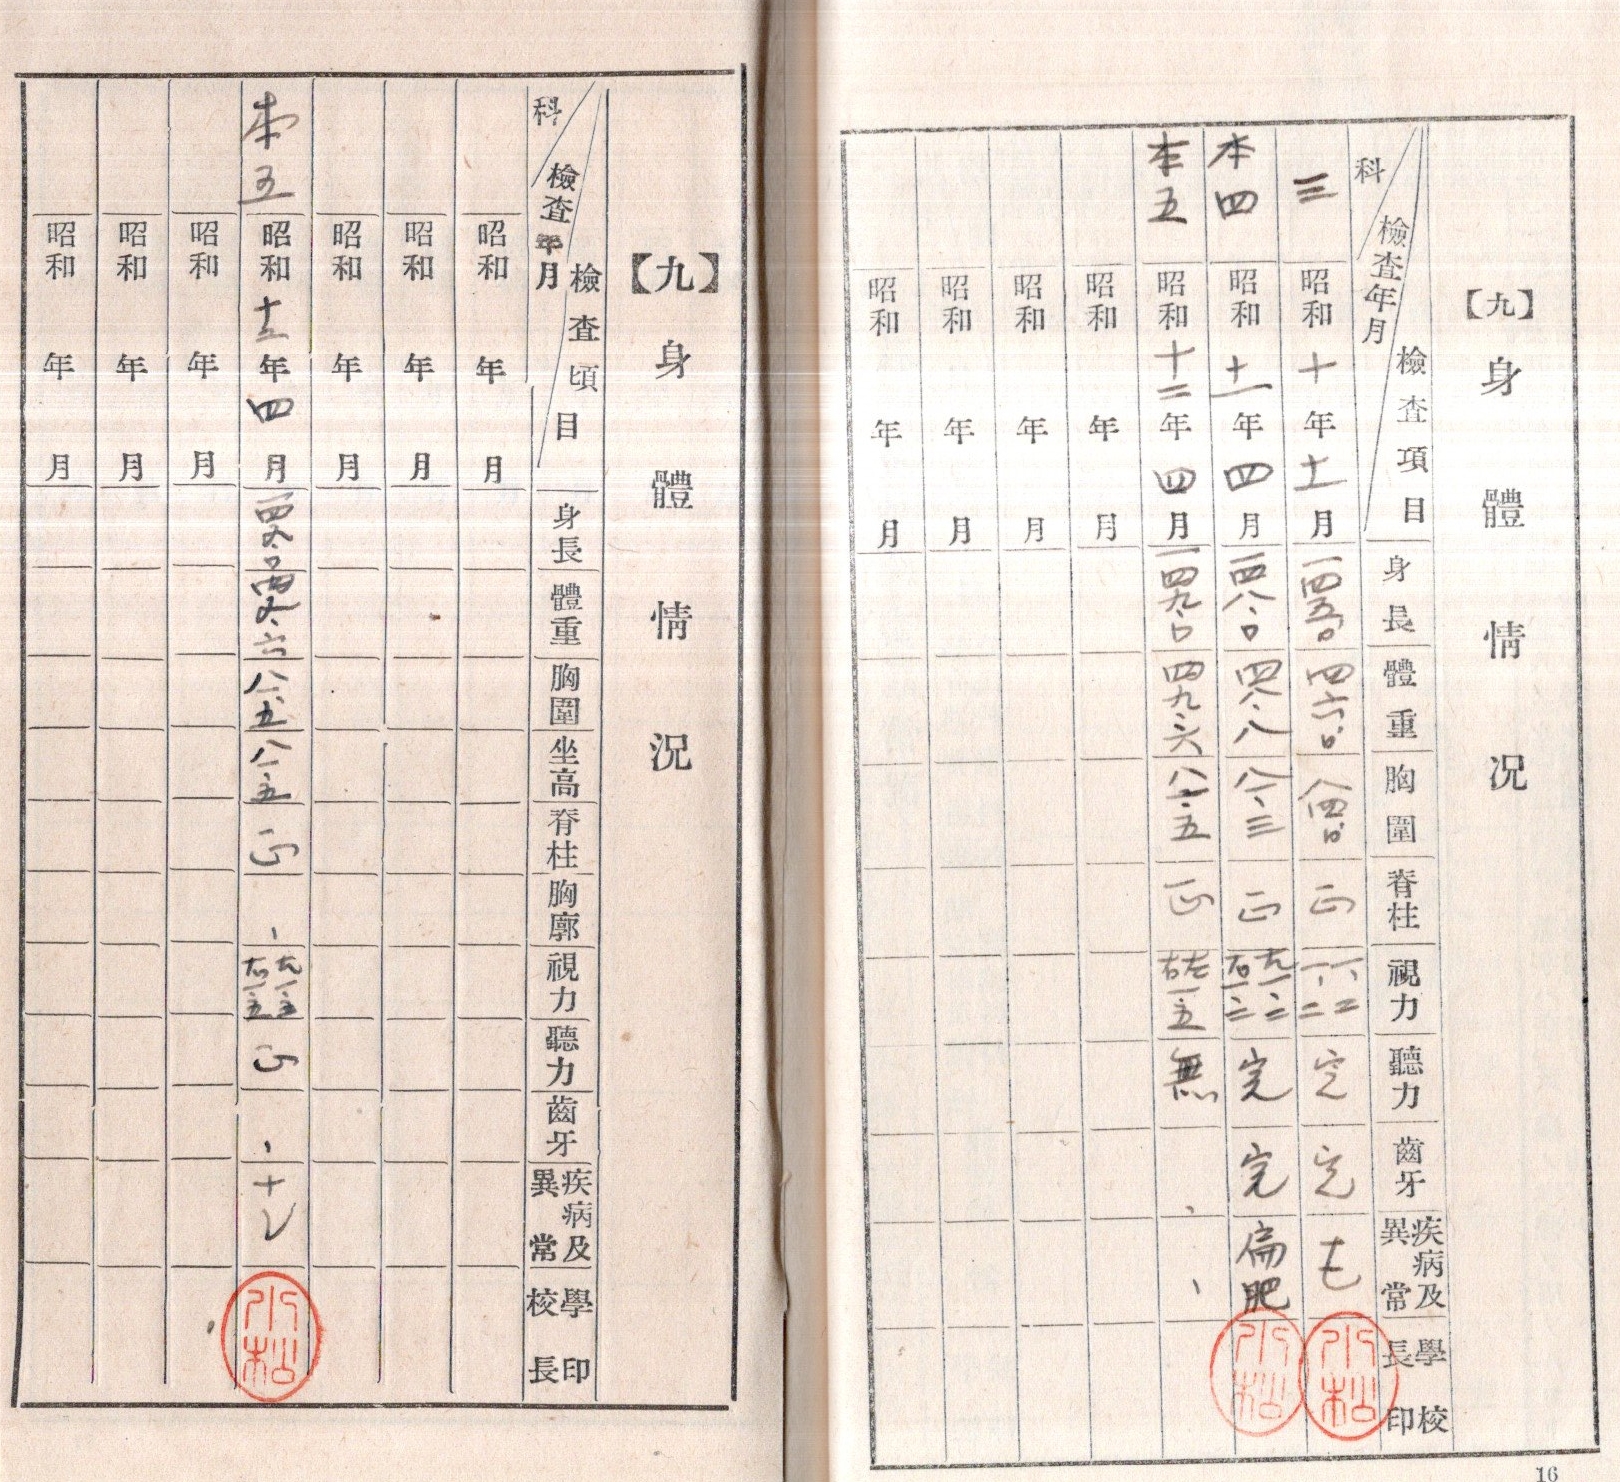 【九】身體情況
科
檢査年月
檢査項目
身長
體重
胸圍
脊柱
視力
聽力
齒牙
疾病及異常
學校長印
三
昭和十年十一月
一四五.〇
四六.〇
八四.〇
正
一、二
一、二
完
完
本四
昭和十一年四月
一四八.〇
四八.八
八一.三
正
左一.二
右一.二
完
完
扁肥
本五
昭和十二年四月
一四九.〇
四九.六
八一.五
正
左右一.五
無
昭和 年 月
昭和 年 月
昭和 年 月
昭和 年 月
16
【九】身體情況
科
檢査年月
檢査項目
身長
體重
胸圍
坐高
脊柱
胸廓
視力
聽力
齒牙
疾病及異常
學校長印
昭和 年 月
昭和 年 月
昭和 年 月
本五
昭和十三年四月
八一.五
八一.五
正
左一.五
右一.五
正
昭和 年 月
昭和 年 月
昭和 年 月